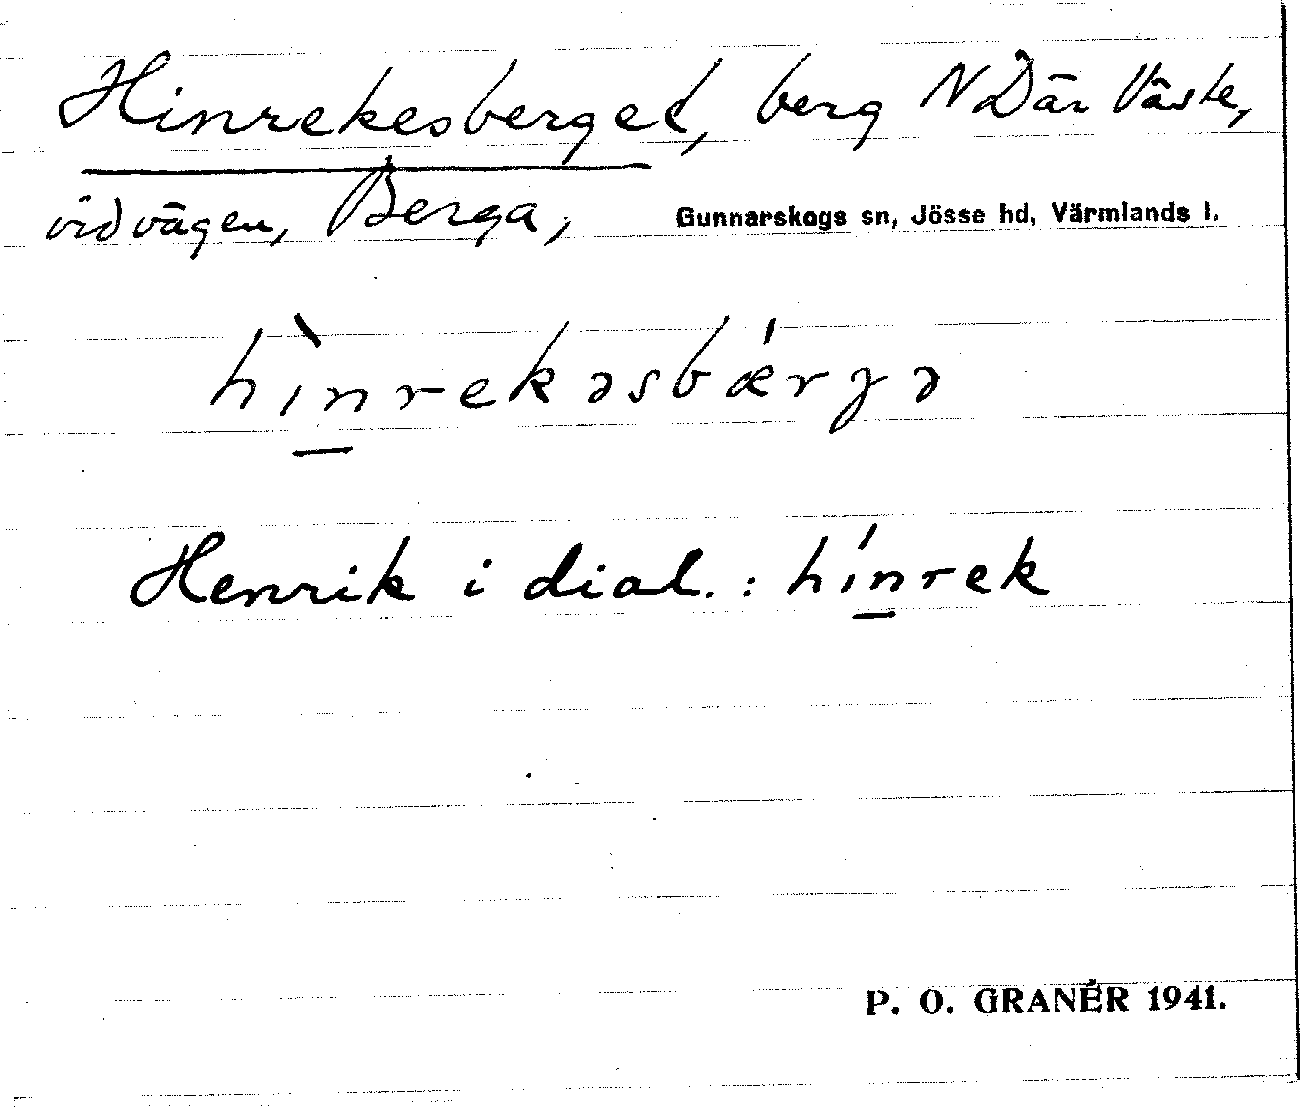 Hinrekesberget, berg N Där Väste,
vid vägen, Berga, Gunnarskogs sn, Jösse hd, Värmlands l.
hìnrekəsbǽrgə
Henrik i dial. : hínrek
P. O. GRANÉR 1941.